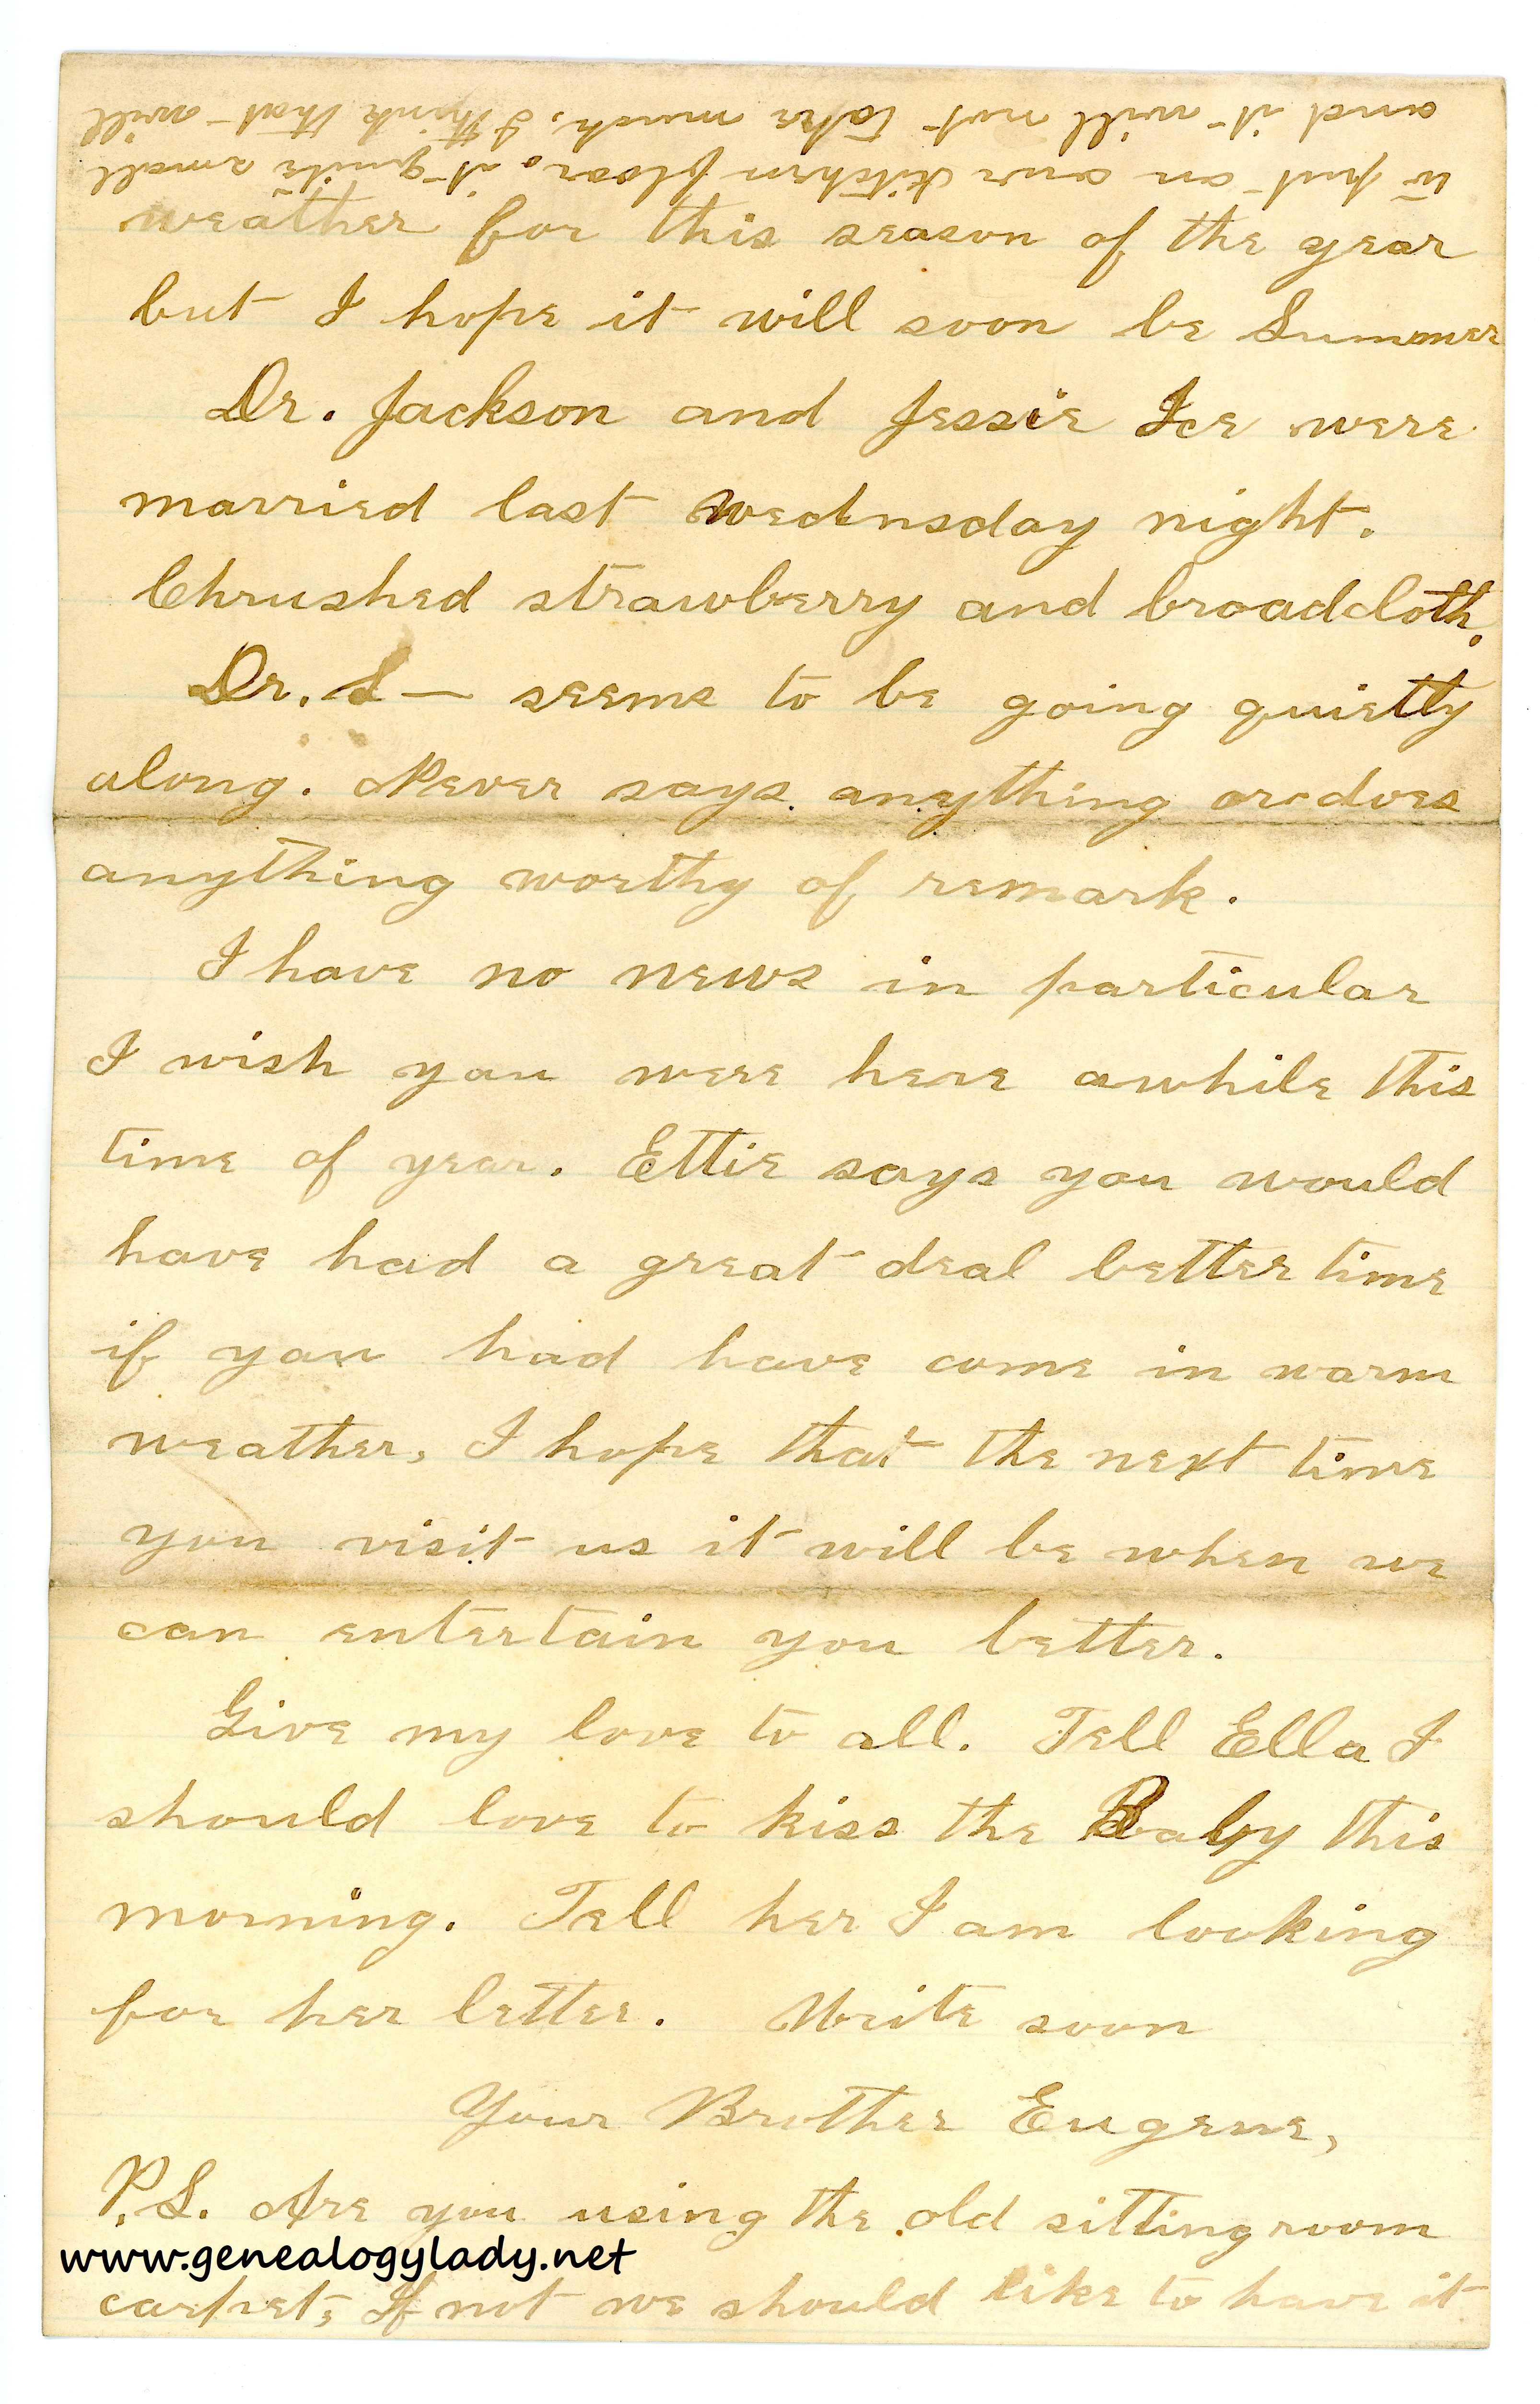 weather for this season of the year
but I hope it will soon be Summer
Dr. Jackson and Jessie Ice were
married last Wednsday night.
Chrushed strawberry and broadcloth.
Dr. S— seems to be going quietly
along. Never says anything or does
anything worthy of remark.
I have no news in particular
I wish you were here awhile this
time of year. Ettie says you would
have had a great deal better time
if you had have come in warm
weather, I hope that the next time
you visit us it will be when we
can entertain you better.
Give my love to all. Tell Ella I
should love to kiss the Baby this
morning. Tell her I am looking
for her letter. Write soon
Your Brother Eugene,
P.S. Are you using the old sitting room
www.genealogylady.net
carpet, If not we should like to have it
to put on our kitchen floor. it quite small
and it will not take much, I think that will